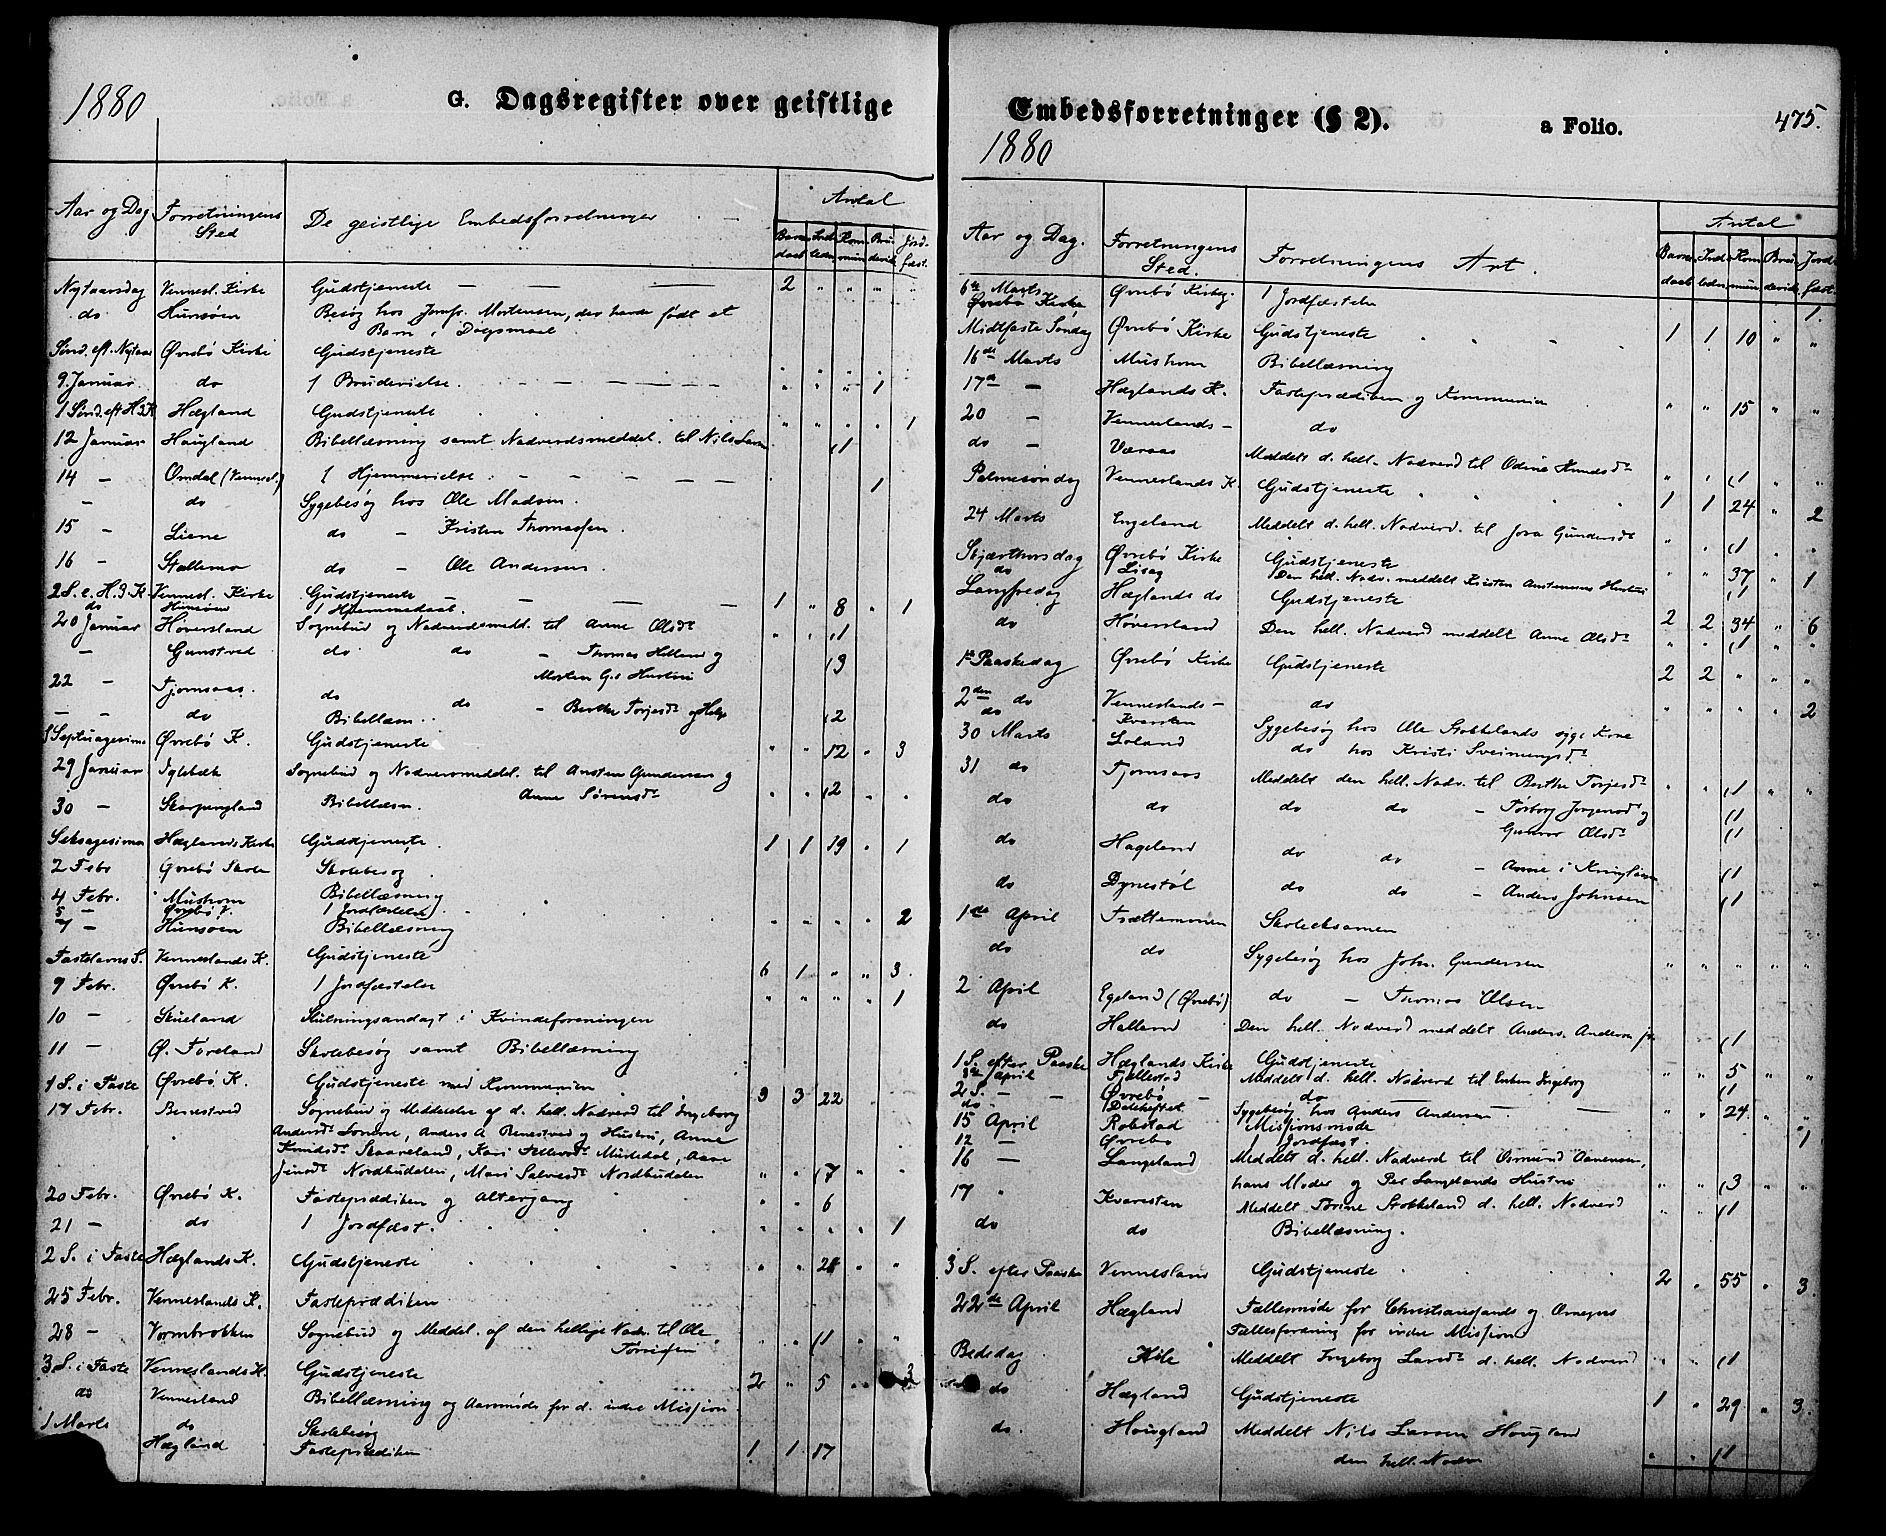 1880
G. Dagsregister over geistlige
Aar og Dag Forretningens Sted De geistlige Embedsforretninger Antal
Barnedaab Indleden Kommun Brudevik Jordfæst.
Nytaarsdag Vennesl. Kirke Gudstjeneste — — — 2 " " "
do Hunsøen Besøg hos Jomfr. Mortensen, der havde født et
Barn i Dagsmaal
Sønd. eft. Nytaar Øvrebø Kirke Gudstjeneste
9 Januar do 1 Brudevielse. " " " 1
1 Sønd. eft H3K Hægland Gudstjeneste " " " . 1
12 Januar Haugland Bibellæsning samt Nadverdsmeddel. til Nils Larsen (1
14 — Omdal (Vennesl.) 1 Hjemmevielse. — — — — 1
— do Sygebesøg hos Ole Madsen.
15 — Liene do — Kristen Thomassen.
16 — Stallemo do — Ole Andersen.
2 S. e. H. 3 K. Vennesl. Kirke Gudstjeneste — — — 1 " 8 " 1
do Hunsøen 1 Hjemmedaab.
20 Januar Høversland Sognebud og Nadverdsmedd. til Anne Olsdr " . (1
— Gunstved do do — Thomas Helland og (3
Morten G.s Hustru
22 — Fjomsaas. do do — Berthe Torjesdr og (2
— — do Bibellæsn.
Septuagesima Øvrebø K. Gudstjeneste " " 12 " 3
29 Januar Iglebæk Sognebud og Nadverdmeddel. til Austen Gundersen og
Anne Sørensdr " " (2 " .
30 — Skarpengland Bibellæsn.
Seksagesima Hæglands Kirke Gudstjeneste. 1 1 19 . 1
2 Febr Øvrebø Skole Skolebesøg
4 Febr. Mushom Bibellæsning
5 — Øvrebø K. 1 Jordfæstelse. " " " " 2
7 — Hunsøen Bibellæsning
Fastelavns S. Venneslands K. Gudstjeneste 6 1 " " 3.
9 Febr. Øvrebø K. 1 Jordfæstelse " " " " 1
10 — Skueland Slutningsandagt i Kvindeforeningen
11 — Ø. Føreland Skolebesøg samt Bibellæsning
1 S. i Faste Øvrebø K. Gudstjeneste med Kommunion 3 3 22
17 Febr. Benestved Sognebud og Meddelelse af d. hell. Nadverd til Ingeborg
Andersdr, Anders A Benestved og Hustru, Anne
Knudsdr Skaareland, Kari, Aane
Nordbudalen, Mari Salvesdr Nordbudalen " " (7 "
20 Febr. Øvrebø K. Fasteprædiken og Altergang " " 6
21 — do 1 Jordfæst. " " " " 1
2 S. i Faste Hæglands K. Gudstjeneste " " 28 " "
25 Febr. Venneslands K. Fasteprædiken
28 — Vormbrokken Sognebud og Meddel. af den hellige Nadv. til Ole " " (1 " "
3 S. i Faste Venneslands K. Gudstjeneste 2 " 5 " " 2
do Vennesland Bibellæsning og Aarsmøde for d. indre Mission.
1 Marts do Skolebesøg
Hægland Fasteprædiken 1 1 17
Embedsforretninger (§ 2). a Folio. 475.
1880
Aar og Dag. Forretningens Sted. Forretningens Art. Antal
Barnedaab Indleden Kommun Brudevik Jordfæst
6te Marts Øvrebø Kirkeg. 1 Jordfæstelse 1.
Øvrebø Kirke
Midtfaste Søndag Øvrebø Kirke Gudstjeneste 1 1 10 " "
16de Marts Mushom Bibellæsning
17de — Hæglands K. Fasteprædiken og Kommunion " " 15 " "
20 — Venneslands — do
do —Væraas Meddelt d. hell. Nadverd til Odine Knudsdr " " (1 " "
Palmesøndag Venneslands K. Gudstjeneste 1 1 24 " 2
24 Marts Engeland Meddelt d. hell. Nadverd. til Jora Gundersdr " " (1 " "
Skjærthorsdag Øvrebø Kirke Gudstjeneste " " 37 " 1
do Lisag Den hell. Nadv. meddelt Kristen Hustru (1
Langfredag Hæglands do Gudstjeneste 2 2 34 " 6
do Høversland Den hell. Nadverd meddelt Anne Olsdr " " (1 " "
1ste Paaskedag Øvrebø Kirke Gudstjeneste 2 2 " " "
2den do Venneslands — do " " " " 2
do Kvarsten Sygebesøg hos Ole Stokkelands syge Kone
30 Marts Loland do hos Kristi Sveinungsdr
31 do Fjomsaas Meddelt den hell. Nadv. til Berthe Torjesdr " " (1 " "
do do do do — Torborg Jørgensdr og (1
Gunvor Olsdr (1
do Hageland do do — Anne i (1
do Dynestøl do do — Anders Johnsen (1
1ste April Trættemmen Skoleeksamen
do do Sygebesøg hos John Gundersen " " " " "
2 April Egeland (Øvrebø) do — Thomas Olsen
do Halland Den hell. Nadverd meddelt Anders Andersen (1
1 S. efter Paaske Hæglands Kirke Gudstjeneste " " 5 " "
April Meddelt d. hell. Nadverd til Enken Ingeborg (1
2 S. — — Øvrebø — do " " 24 " "
do Sygebesøg hos Anders Andersen — —
15 April Robstad Missionsmøde
12 — Øvrebø 1 Jordfæst. 1
16 — Langeland Meddelt d. hell. Nadverd til Osmund Aanensen,
hans Moder og Per Langelands Hustru " " (3 " "
17 " Kvarsten Meddelt Torine Stokkeland d. hell. Nadverd " " (1
do do Bibellæsning.
3 S. efter Paaske Vennesland Gudstjeneste 2 " 55 " 3.
22de April Hægland Fællesmøde for Christianssands og Omegns
Fællesforening for indre Mission
Bededag Kile Meddelt Ingeborg Larsdr d. hell. Nadverd " " (1
do Hægland Gudstjeneste 1 " 29 " 3.
do. Hougland Meddelt Nils Larsen Hougland
den hell. Nadv. " " (1